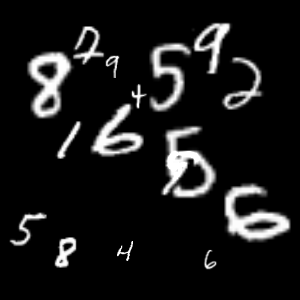 8 7 9 4 5 9 2
1 6 5
6
5 8 4 6